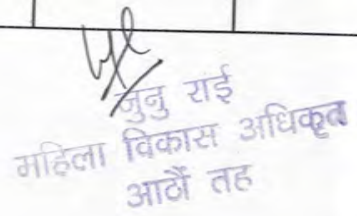 जुनु राई
महिला विकास अधिकृत
आठौँ तह